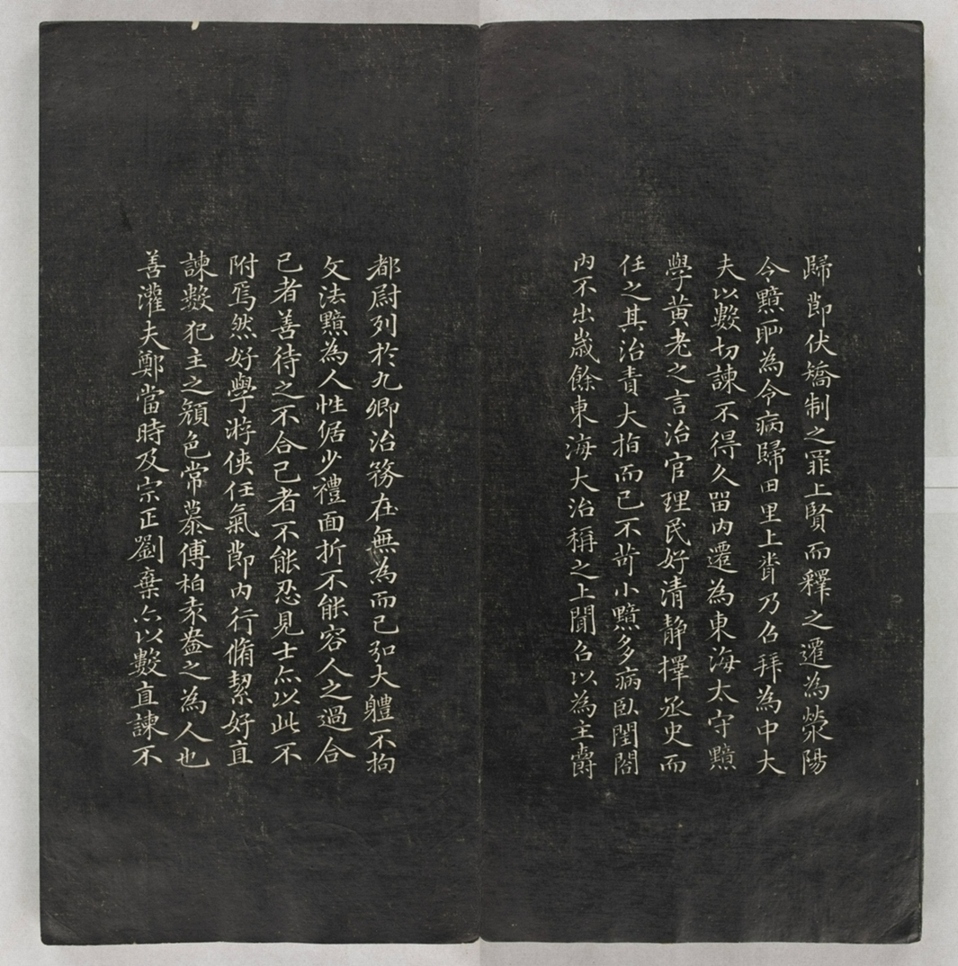 歸節伏矯制之罪上賢而釋之遷為滎陽
令黯恥為令病歸田里上聞乃召拜為中大
夫以數切諫不得久留內遷為東海太守黯
學黃老之言治官理民好清靜擇丞史而
任之其治責大指而已不苛小黯多病臥閨閤
內不出歲餘東海大治稱之上聞召以為主爵
都尉列於九卿治務在無為而已弘大體不拘
文法黯為人性倨少禮面折不能容人之過合
己者善待之不合己者不能忍見士亦以此不
附焉然好學游俠任氣節內行脩絜好直
諫數犯主之顏色常慕傅柏袁盎之為人也
善灌夫鄭當時及宗正劉棄亦以數直諫不